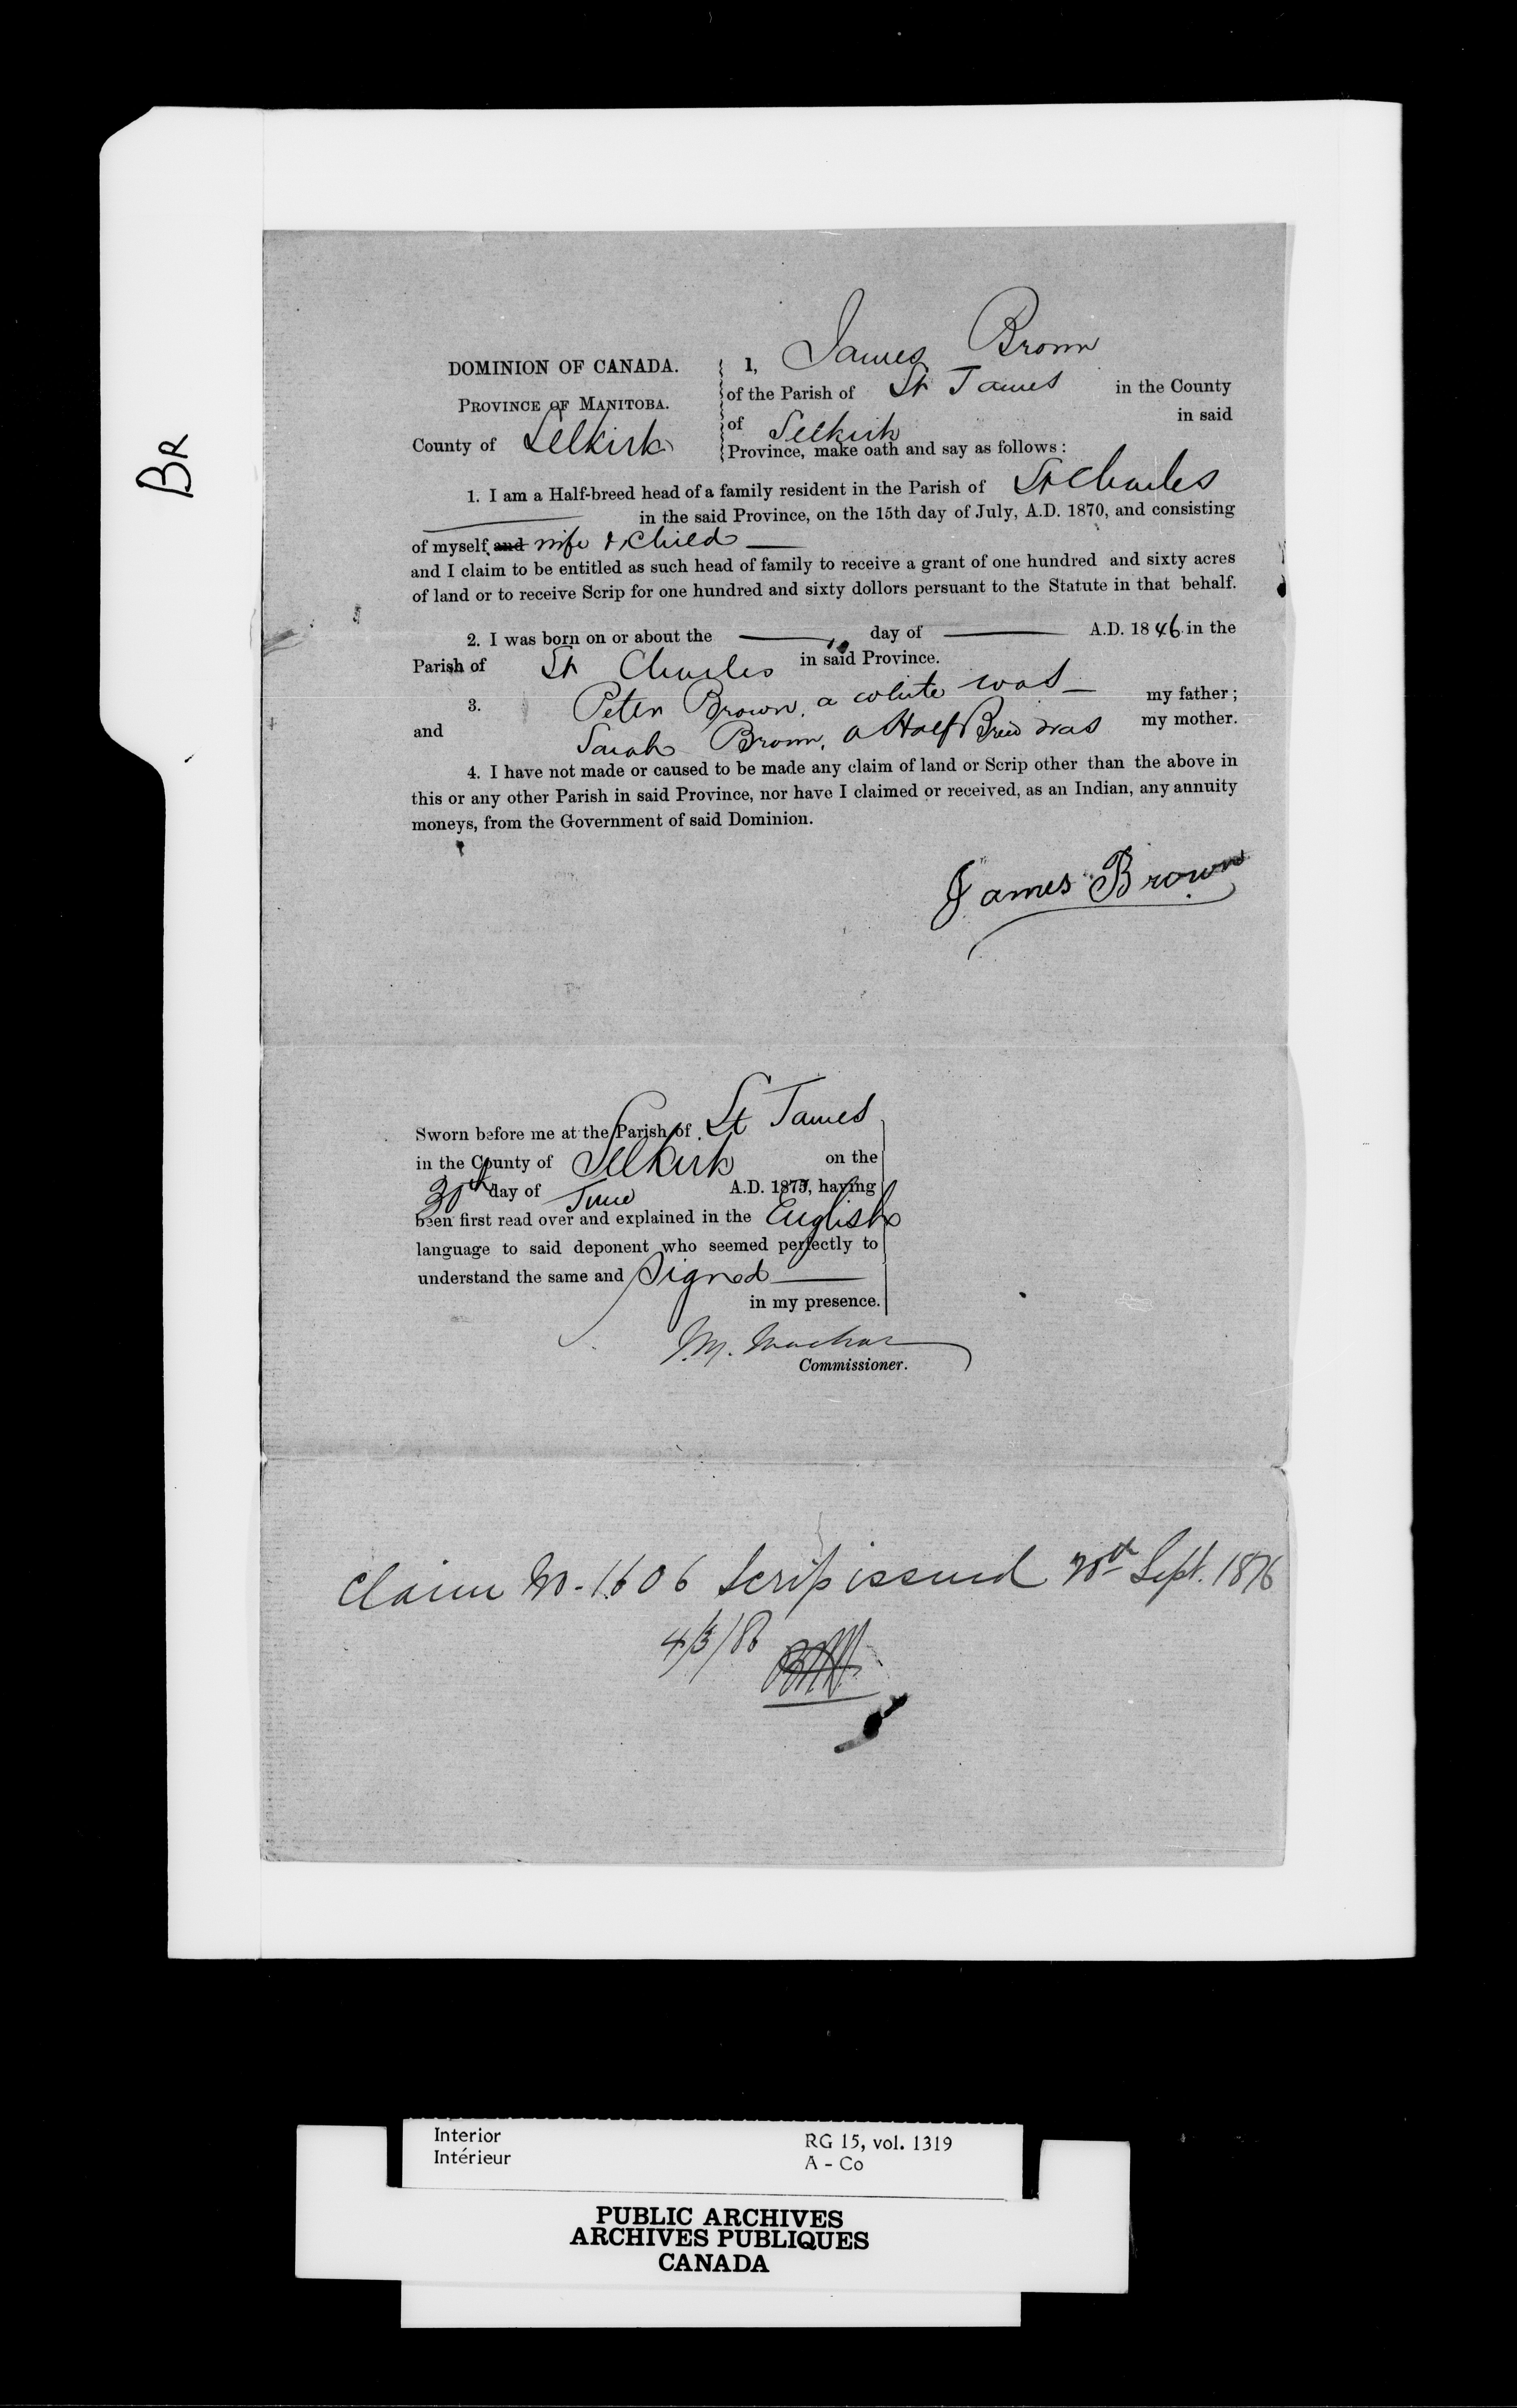 BR
DOMINION OF CANADA.
PROVINCE OF MANITOBA.
County of Selkirk
I, James Brown
of the Parish of St James in the County
of Selkirk in said
Province, make oath and say as follows :
1. I am a Half-breed head of a family resident in the Parish of St Charles
in the said Province, on the 15th day of July, A.D. 1870, and consisting
of myself and wife & child
and I claim to be entitled as such head of family to receive a grant of one hundred and sixty acres
of land or to receive Scrip for one hundred and sixty dollors persuant to the Statute in that behalf.
2. I was born on or about the day of A.D. 1846 in the
Parish of St Charles in said Province.
3. Peter Brown, a white was my father ;
and Sarah Brown, a Half Breed was my mother.
4. I have not made or caused to be made any claim of land or Scrip other than the above in
this or any other Parish in said Province, nor have I claimed or received, as an Indian, any annuity
moneys, from the Government of said Dominion.
James Brown
Sworn before me at the Parish of St James
in the County of Selkirk on the
30th day of June A.D. 1875, having
been first read over and explained in the English
language to said deponent who seemed perfectly to
understand the same and signed
in my presence.
J.M. Machar
Commissioner.
Claim No. 1606 Scrip issued 20th Sept. 1876
4/3/86
Interior
Intérieur
RG 15, vol. 1319
A - Co
PUBLIC ARCHIVES
ARCHIVES PUBLIQUES
CANADA